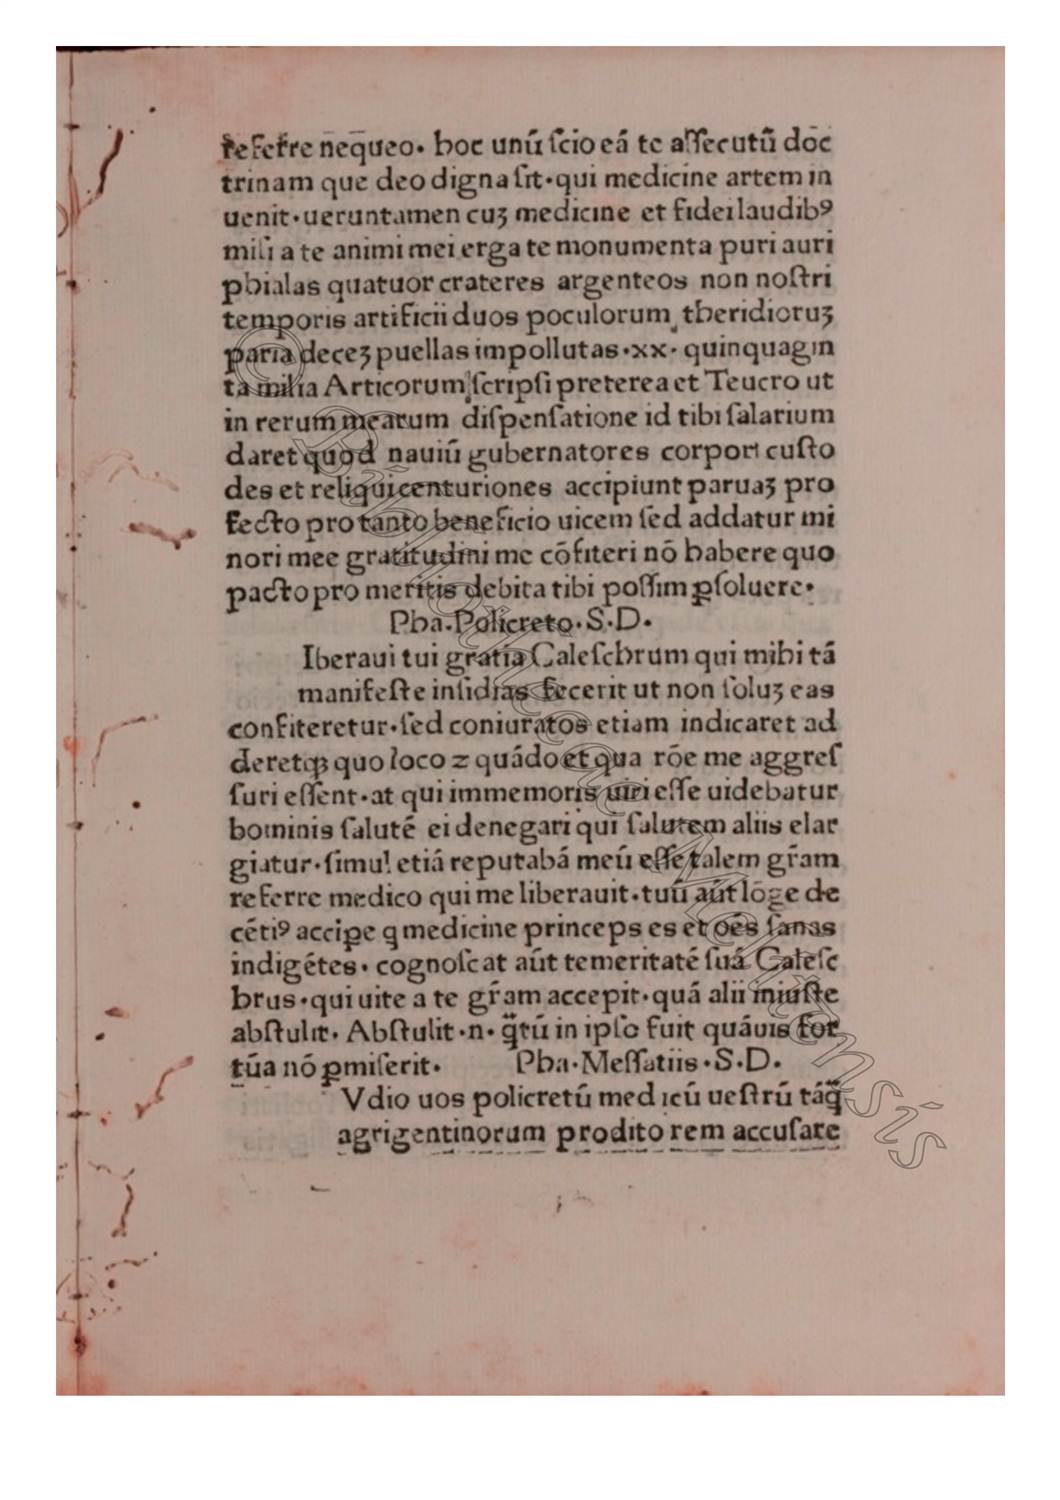 referre nequeo. hoc unū ſcio eā te aſſecutū doc
trinam que deo digna ſit·qui medicine artem in
uenit·ueruntamen cuʒ medicine et fidei laudibꝰ
miſi a te animi mei erga te monumenta puri auri
phialas quatuor crateres argenteos non noſtri
temporis artificii duos poculorum theridioruʒ
paria deceʒ puellas impollutas·xx· quinquagin
ta milia Articorum ſcripſi preterea et Teucro ut
in rerum mearum diſpenſatione id tibi ſalarium
daret quod nauiū gubernatores corpori cuſto
des et reliqui centuriones accipiunt paruaʒ pro
fecto pro tanto beneficio uicem ſed addatur mi
nori mee gratitudini me cōfiteri nō habere quo
pacto pro meritis debita tibi poſſim ꝑſoluere·
Pha·Policreto·S·D·
Iberaui tui gratia Caleſchrum qui mihi tā
manifeſte inſidias fecerit ut non ſoluʒ eas
confiteretur·ſed coniuratos etiam indicaret ad
deretqꝫ quo loco ⁊ quādo et qua rōe me aggreſ
ſuri eſſent·at qui immemoris uiri eſſe uidebatur
hominis ſalutē ei denegari qui ſalutem aliis elar
giatur·ſimul etiā reputabā meū eſſe talem gr̄am
referre medico qui me liberauit·tuū aūt lōge de
cētiꝰ accipe q medicine princeps es et oēs ſanas
indigētes· cognoſcat aūt temeritatē ſuā Caleſc
hrus·qui uite a te gr̄am accepit·quā alii iniuſte
abſtulit· Abſtulit·n· q̄tū in ipſo fuit quāuis for
tūa nō ꝑmiſerit· Pha·Meſſatiis·S·D·
Vdio uos policretū medicū ueſtrū tāq̄
agrigentinorum proditorem accuſare
© Bibliothecae Mellicensis